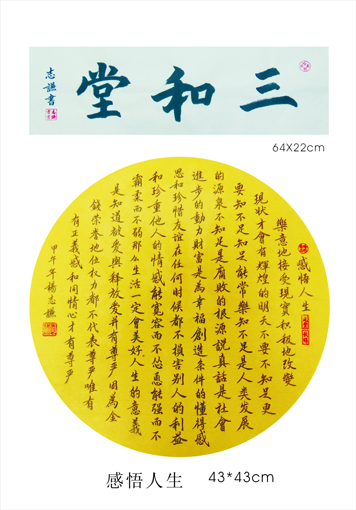 三和堂
志謙書
64X22cm
感悟人生
樂意地接受現實積极地改變
現狀才會有輝煌的明天不要不知足更
要知不足知足能常樂知不足是人类發展
的源泉不知足是腐敗的根源說真話是社會
進步的動力財富是為幸福創造条件的懂得感
思和珍惜友誼在任何时候都不損害别人的利益
和珍重他人的情感能寬容而不怂恿能强而不
霸柔而不弱那么生活一定會美好人生的意義
是知道被愛與释放愛并有尊严因為金
錢荣眷地位权力都不代表尊严唯有
有正義感和同情心才有尊严
甲午年楊志謙
感悟人生
43*43cm